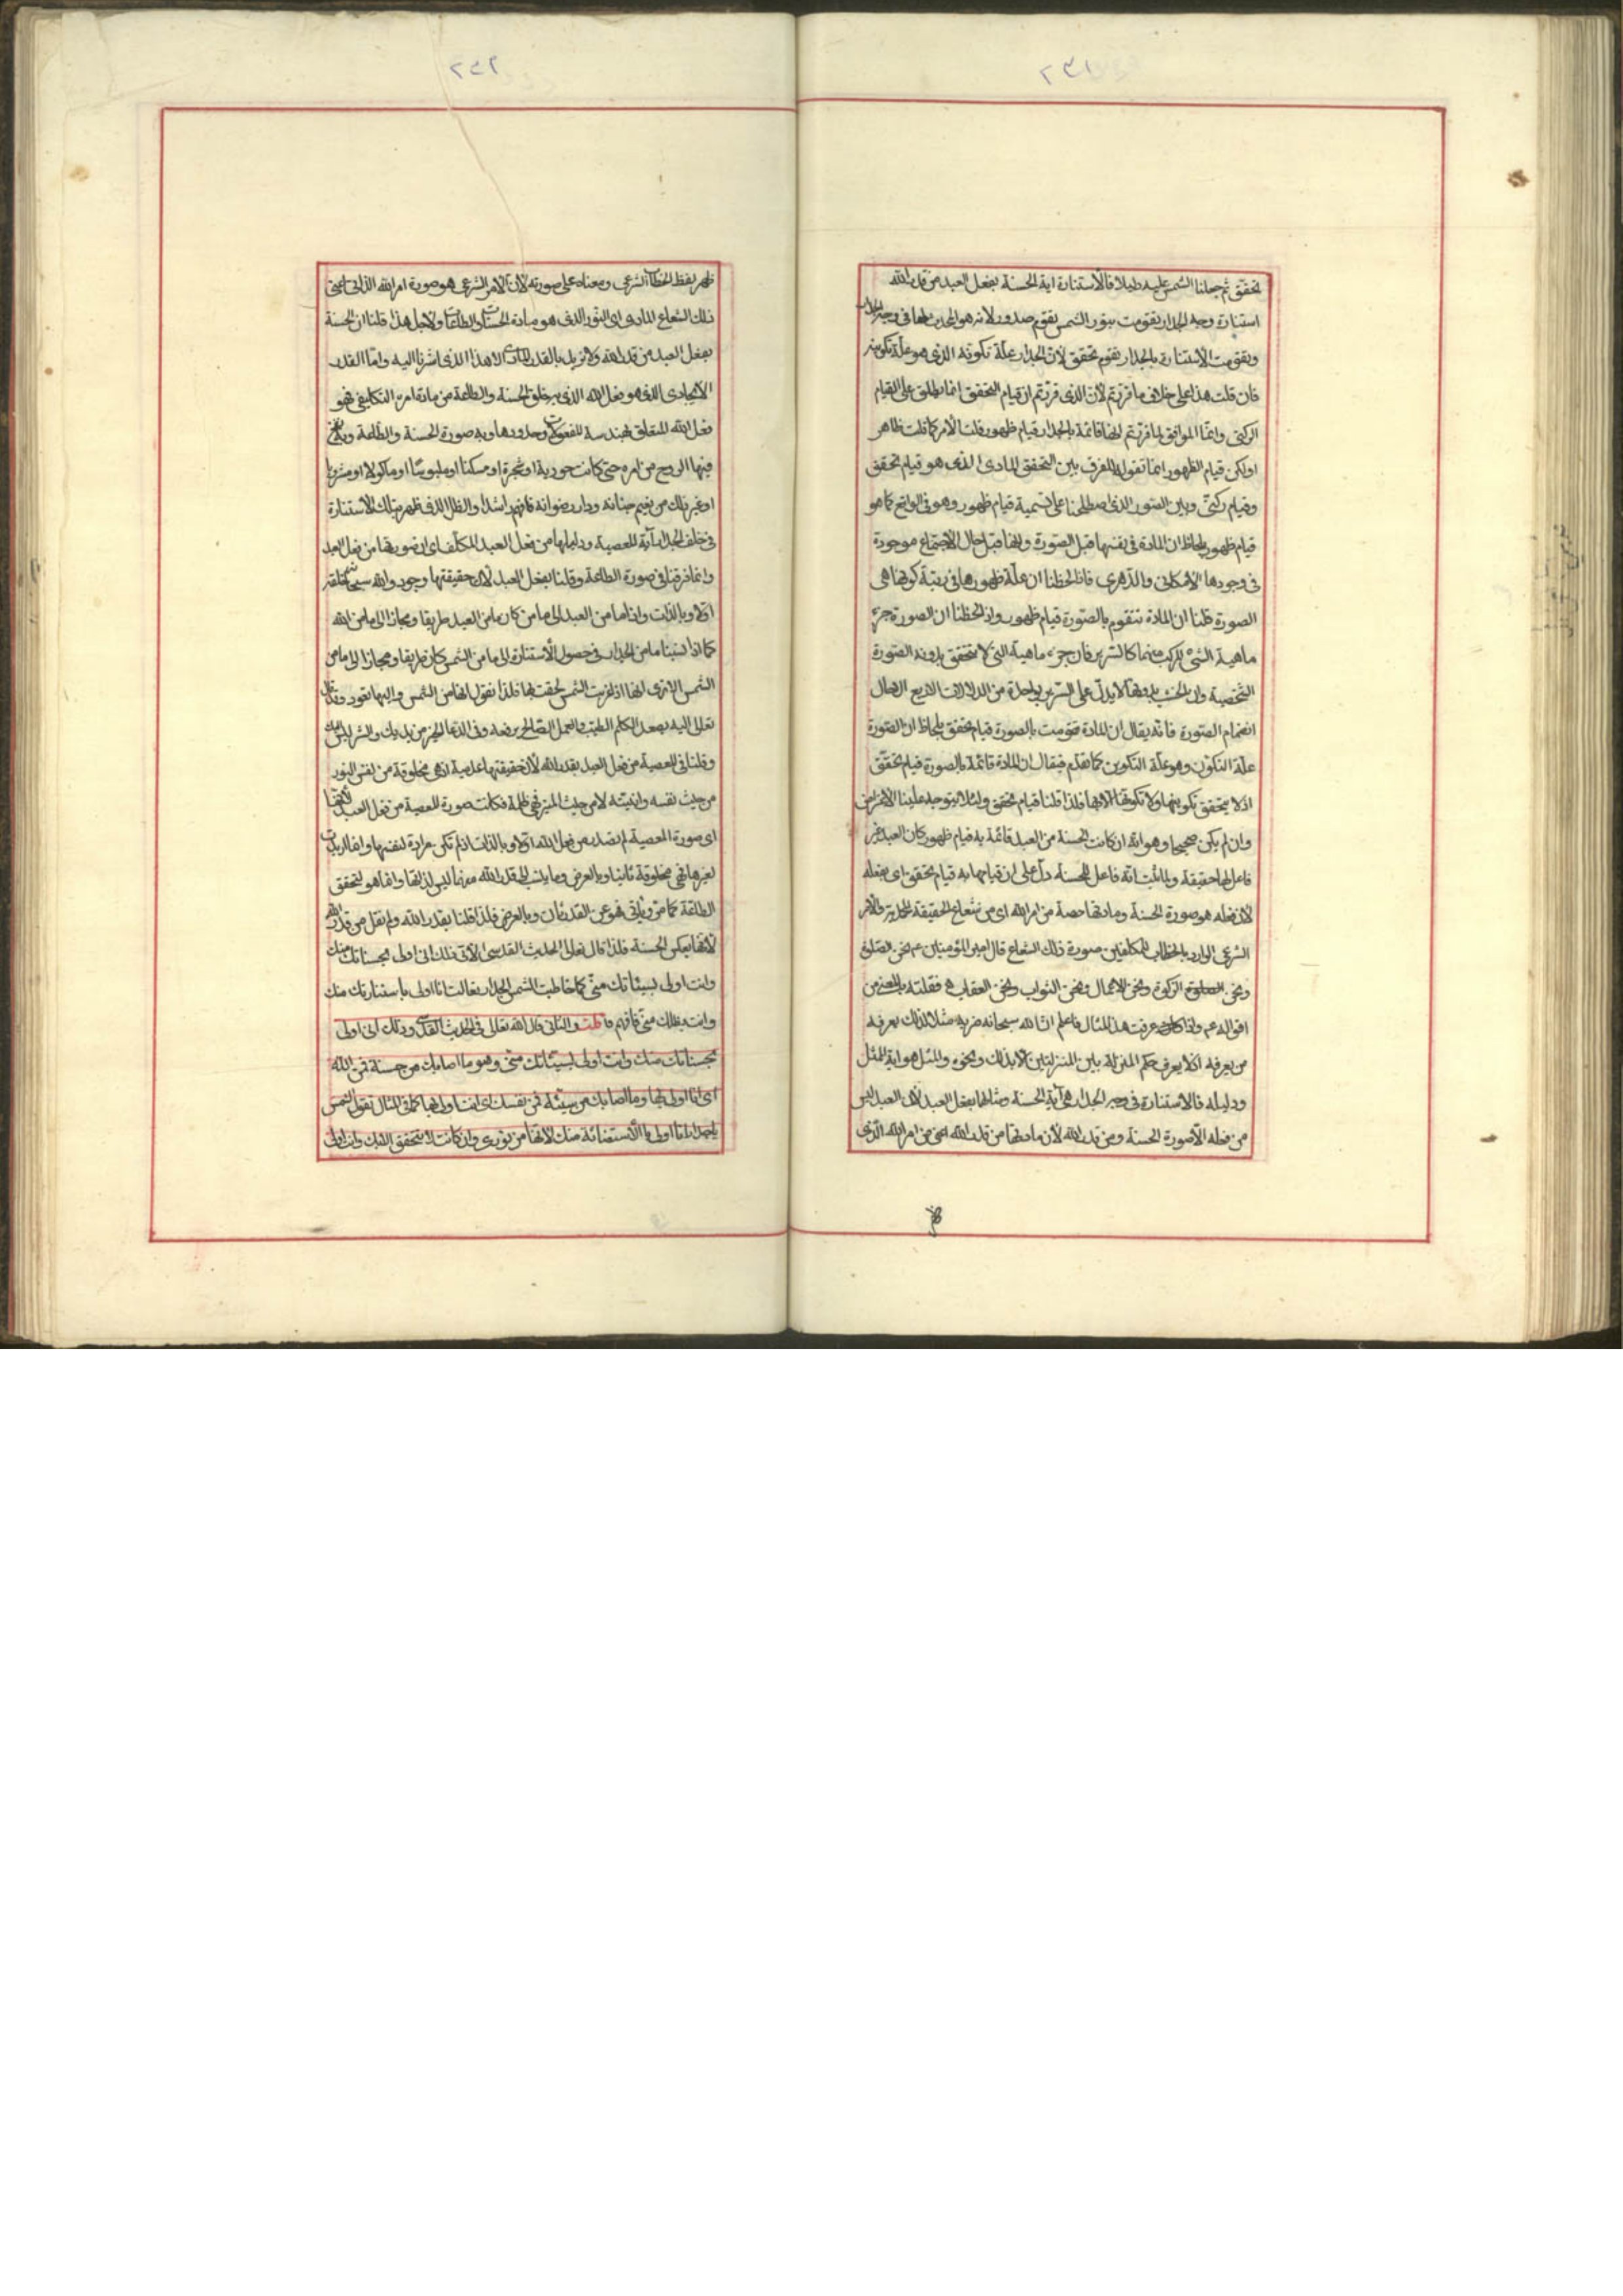 ٢٣١
تحقق ثم جعلنا الشمس عليه دليلا فالاستنارة اية الحسنة بفعل العبد من قدر الله
استنارة وجه الجدار تقومت بنور الشمس تقوم صدور لانه هو المحدث لها في وجه الجدار
وتقومت الاستنارة بالجدار تقوم تحقق لان الجدار علة تكونه الذي هو علة تكوينه
فان قلت هذا على خلاف ما قررتم لان الذي قررتم ان قيام التحقق انما يطلق على القيام
الركني وانما الموافق لما قررتم انها قائمة بالجدار قيام ظهور قلت الأمر كما قلت ظاهر
اولكن قيام الظهور انما نقوله للفرق بين التحقق المادى الذي هو قيام تحقق
وقيام ركني وبين الصورى الذي اصطلحنا على تسمية قيام ظهور وهو في الواقع كما هو
قيام ظهور بلحاظ ان المادة في نفسها قبل الصورة وانها قبل حال الاجتماع موجودة
في وجودها الامكاني والدهري فاذا لحظنا ان علة ظهورها في رتبة كونها هي
الصورة قلنا ان المادة تتقوم بالصورة قيام ظهور واذ لحظنا ان الصورة جزء
ماهية الشئ المركب منهما كالسرير فان جزء ماهية التي لا تتحقق بدونه الصورة
الشخصية وان الخشب بدونها لا يدل على السرير بواحدة من الدلالات الاربع الا حال
انضمام الصورة فانه يقال ان المادة تقومت بالصورة قيام تحقق بلحاظ ان الصورة
علة التكون وهو علة التكوين كما تقدم فيقال ان المادة قائمة بالصورة قيام تحقق
اذ لا يتحقق تكوينها ولا تكونها الا بها فلذا قلنا قيام تحقق ولئلا يتوجه علينا الاعتراض
وان لم يكن صحيحا وهو انه ان كانت الحسنة من العبد قائمة به قيام ظهور كان العبد غير
فاعل لها حقيقة ولما ثبت انه فاعل للحسنة دل على ان قيامها به قيام تحقق اى بفعله
لان فعله هو صورة الحسنة ومادتها حصة من امر الله اى من شعاع الحقيقة المحمدية والامر
الشرعي الوارد بالخطاب للمكلفين صورة ذلك الشعاع قال امير المؤمنين ع نحن الصلوة
ونحن الزكوة ونحن الاعمال ونحن الثواب ونحن العقاب ه فقلته بالمعنى من
اقواله ع واذا عرفت هذا المثال فاعلم ان الله سبحانه ضربه مثلا لذلك يعرفه
من يعرفه اذ لا يعرف حكم المنزلة بين المنزلتين الا بذلك ونحوه والمثل هو اية الممثل
ودليله فالاستنارة في وجه الجدار هي آية الحسنة ومثالها بفعل العبد لان العبد ليس
من فعله الا صورة الحسنة ومن قدر الله لأن مادتها من قدر الله اعنى من امر الله الذى
٢٣٢
ظهر بلفظ الخطاب الشرعي ومعناه على صورته لان الامر الشرعي هو صورة امر الله الذاتي اعنى
ذلك الشعاع المادى اى النور الذى هو مادة الحسنات والطاعات ولاجل هذا قلنا ان الحسنة
بفعل العبد من قدر الله ولا نريد بالقدر المادى الا هذا الذى اشرنا اليه واما القدر
الايجادى الذى هو فعل الله الذى به خلق الحسنة والطاعة من مادة امره التكليفي فهو
فعل الله المتعلق بهندسة المفعولات وحدودها وبه صورة الحسنة والطاعة
فيها الروح من امره حتى كانت حورية او شجرة او مسكنا او ملبوسا او ماكولا او مشروبا
او غير ذلك من نعيم جنانه ودار رضوانه فافهم راشدا والظل الذى ظهر بتلك الاستنارة
في خلف الجدار آية المعصية ودليلها من فعل العبد المكلف اى ان صورتها من فعل العبد
وانما فرقنا في صورة الطاعة وقلنا بفعل العبد لان حقيقتها وجود والله سبحانه خلقه
اولا وبالذات واذا ما من العبد الى ما من كان ما من العبد طريقا ومجازا الى ما من الله
كما اذا نسبنا ما من الجدار في حصول الأستنارة الى ما من الشمس كان طريقا ومجازا الى ما من
الشمس الا ترى انها اذا غربت الشمس لحقت بها فلذا نقول انها من الشمس واليها تعود وقد قال
تعالى اليه يصعد الكلم الطيب والعمل الصالح يرفعه وفي الدعا الخير من يديك والشر ليس اليك
وقلنا في المعصية من فعل العبد بقدر الله لأن حقيقتها عدمية اذ هي مخلوقة من نفس النور
من حيث نفسه وانيته لا من حيث المنير فهي ظلمة فكانت صورة المعصية من فعل العبد لأنها
اى صورة المعصية لم تصدر من فعل الله اولا وبالذات اذ لم تكن مرادة لنفسها وانما اريدت
لغيرها فهي مخلوقة ثانيا وبالعرض وما ينسب الى قدر الله منهما ليس لذاتها وانما هو لتحقق
الطاعة كما مر وياتي فهو عن القدر ثان وبالعرض فلذا قلنا بقدر الله ولم نقل من قدر الله
لأنها بعكس الحسنة فلذا قال تعالى الحديث القدسي الآتي ذلك انى اولى بحسناتك منك
وانت اولى بسيئاتك منى كما خاطبت الشمس الجدار فقالت انا اولى باستنارتك منك
وانت بظلك منى فافهم قلت والثاني قال الله تعالى في الحديث القدسي وذلك انى اولى
بحسناتك منك وانت اولى بسيئاتك منى وهو ما اصابك من حسنة فمن الله
اى انا اولى بها وما اصابك من سيئة فمن نفسك اى انت اولى بها كما في المثال تقول الشمس
يا جدار انا اولى بالاستضائة منك لانها من نوري وان كانت لا تتحقق الا بك وانت اولى